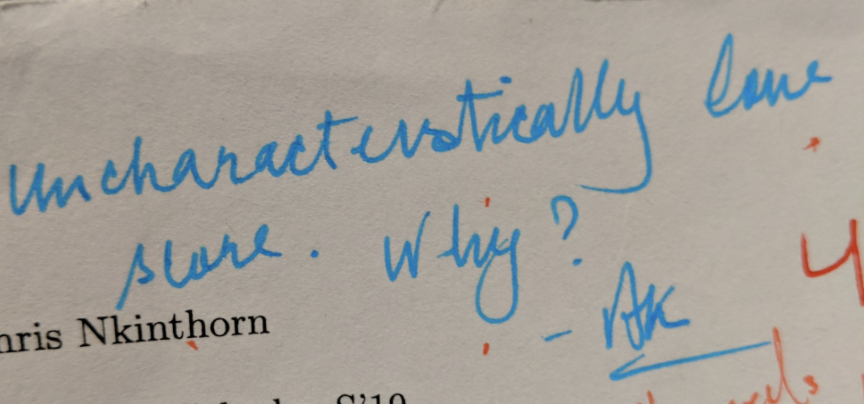 Uncharacteristically low
score. Why?
- AK
hris Nkinthorn
S'19